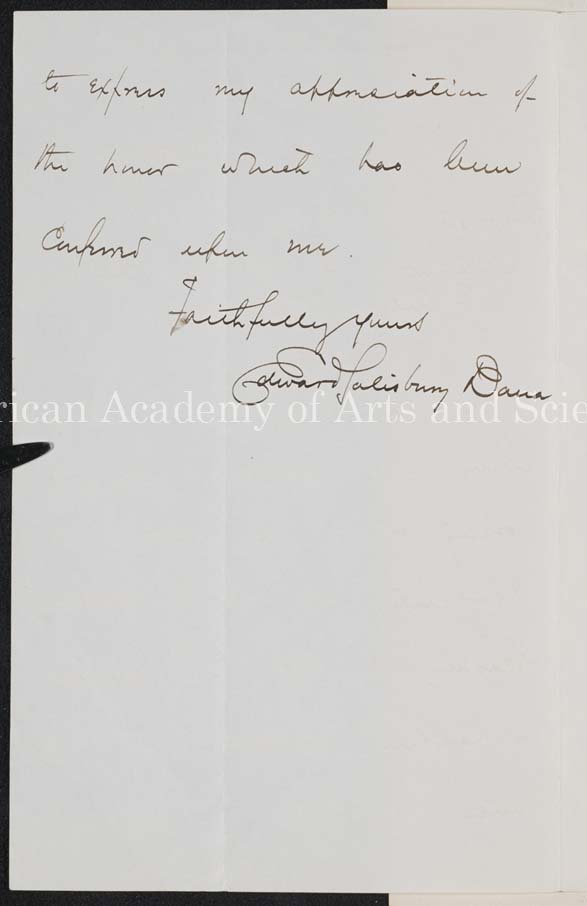 to express my appreciation of
the honor which has been
conferred upon me.
Faithfully yours
Edward Salisbury Dana
rican Academy of Arts and Scie